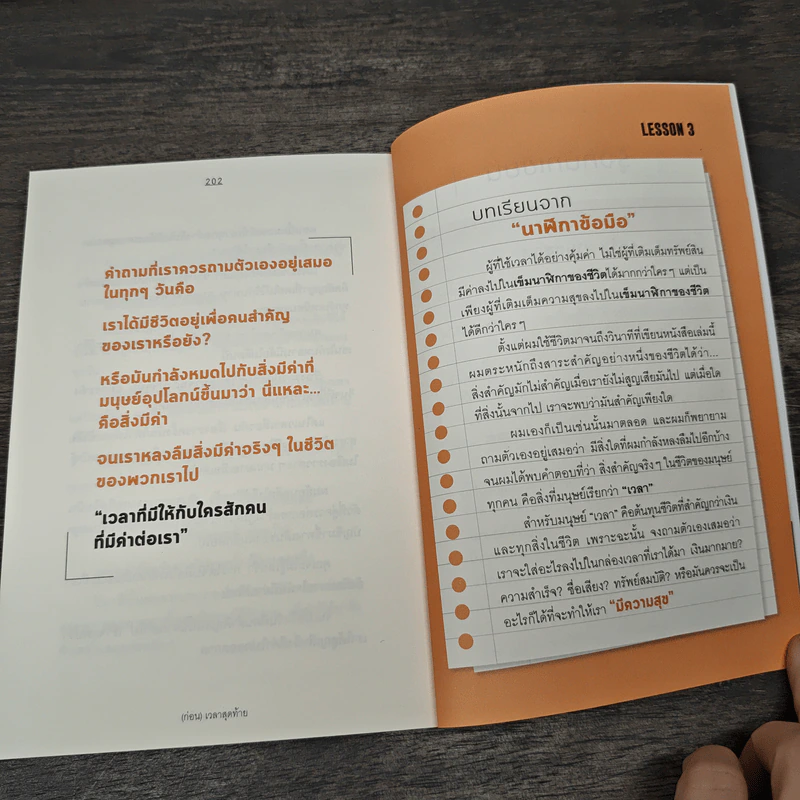 202
คำถามที่เราควรถามตัวเองอยู่เสมอ
ในทุกๆ วันคือ
เราได้มีชีวิตอยู่เพื่อคนสำคัญ
ของเราหรือยัง?
หรือมันกำลังหมดไปกับสิ่งมีค่าที่
มนุษย์อุปโลกน์ขึ้นมาว่า นี่แหละ...
คือสิ่งมีค่า
จนเราหลงลืมสิ่งมีค่าจริงๆ ในชีวิต
ของพวกเราไป
“เวลาที่มีให้กับใครสักคน
ที่มีค่าต่อเรา”
(ก่อน) เวลาสุดท้าย
LESSON 3
บทเรียนจาก
“นาฬิกาข้อมือ”
ผู้ที่ใช้เวลาได้อย่างคุ้มค่า ไม่ใช่ผู้ที่เติมเต็มทรัพย์สิน
มีค่าลงไปในเข็มนาฬิกาของชีวิตได้มากกว่าใครๆ แต่เป็น
เพียงผู้ที่เติมเต็มความสุขลงไปในเข็มนาฬิกาของชีวิต
ได้ดีกว่าใครๆ
ตั้งแต่ผมใช้ชีวิตมาจนถึงวินาทีที่เขียนหนังสือเล่มนี้
ผมตระหนักถึงสาระสำคัญอย่างหนึ่งของชีวิตได้ว่า...
สิ่งสำคัญมักไม่สำคัญเมื่อเรายังไม่สูญเสียมันไป แต่เมื่อใด
ที่สิ่งนั้นจากไป เราจะพบว่ามันสำคัญเพียงใด
ผมเองก็เป็นเช่นนั้นมาตลอด และผมก็พยายาม
ถามตัวเองอยู่เสมอว่า มีสิ่งใดที่ผมกำลังหลงลืมไปอีกบ้าง
จนผมได้พบคำตอบที่ว่า สิ่งสำคัญจริงๆ ในชีวิตของมนุษย์
ทุกคน คือสิ่งที่มนุษย์เรียกว่า “เวลา”
สำหรับมนุษย์ “เวลา” คือต้นทุนชีวิตที่สำคัญกว่าเงิน
และทุกสิ่งในชีวิต เพราะฉะนั้น จงถามตัวเองเสมอว่า
เราจะใส่อะไรลงไปในกล่องเวลาที่เราได้มา เงินมากมาย?
ความสำเร็จ? ชื่อเสียง? ทรัพย์สมบัติ? หรือมันควรจะเป็น
อะไรก็ได้ที่จะทำให้เรา “มีความสุข”